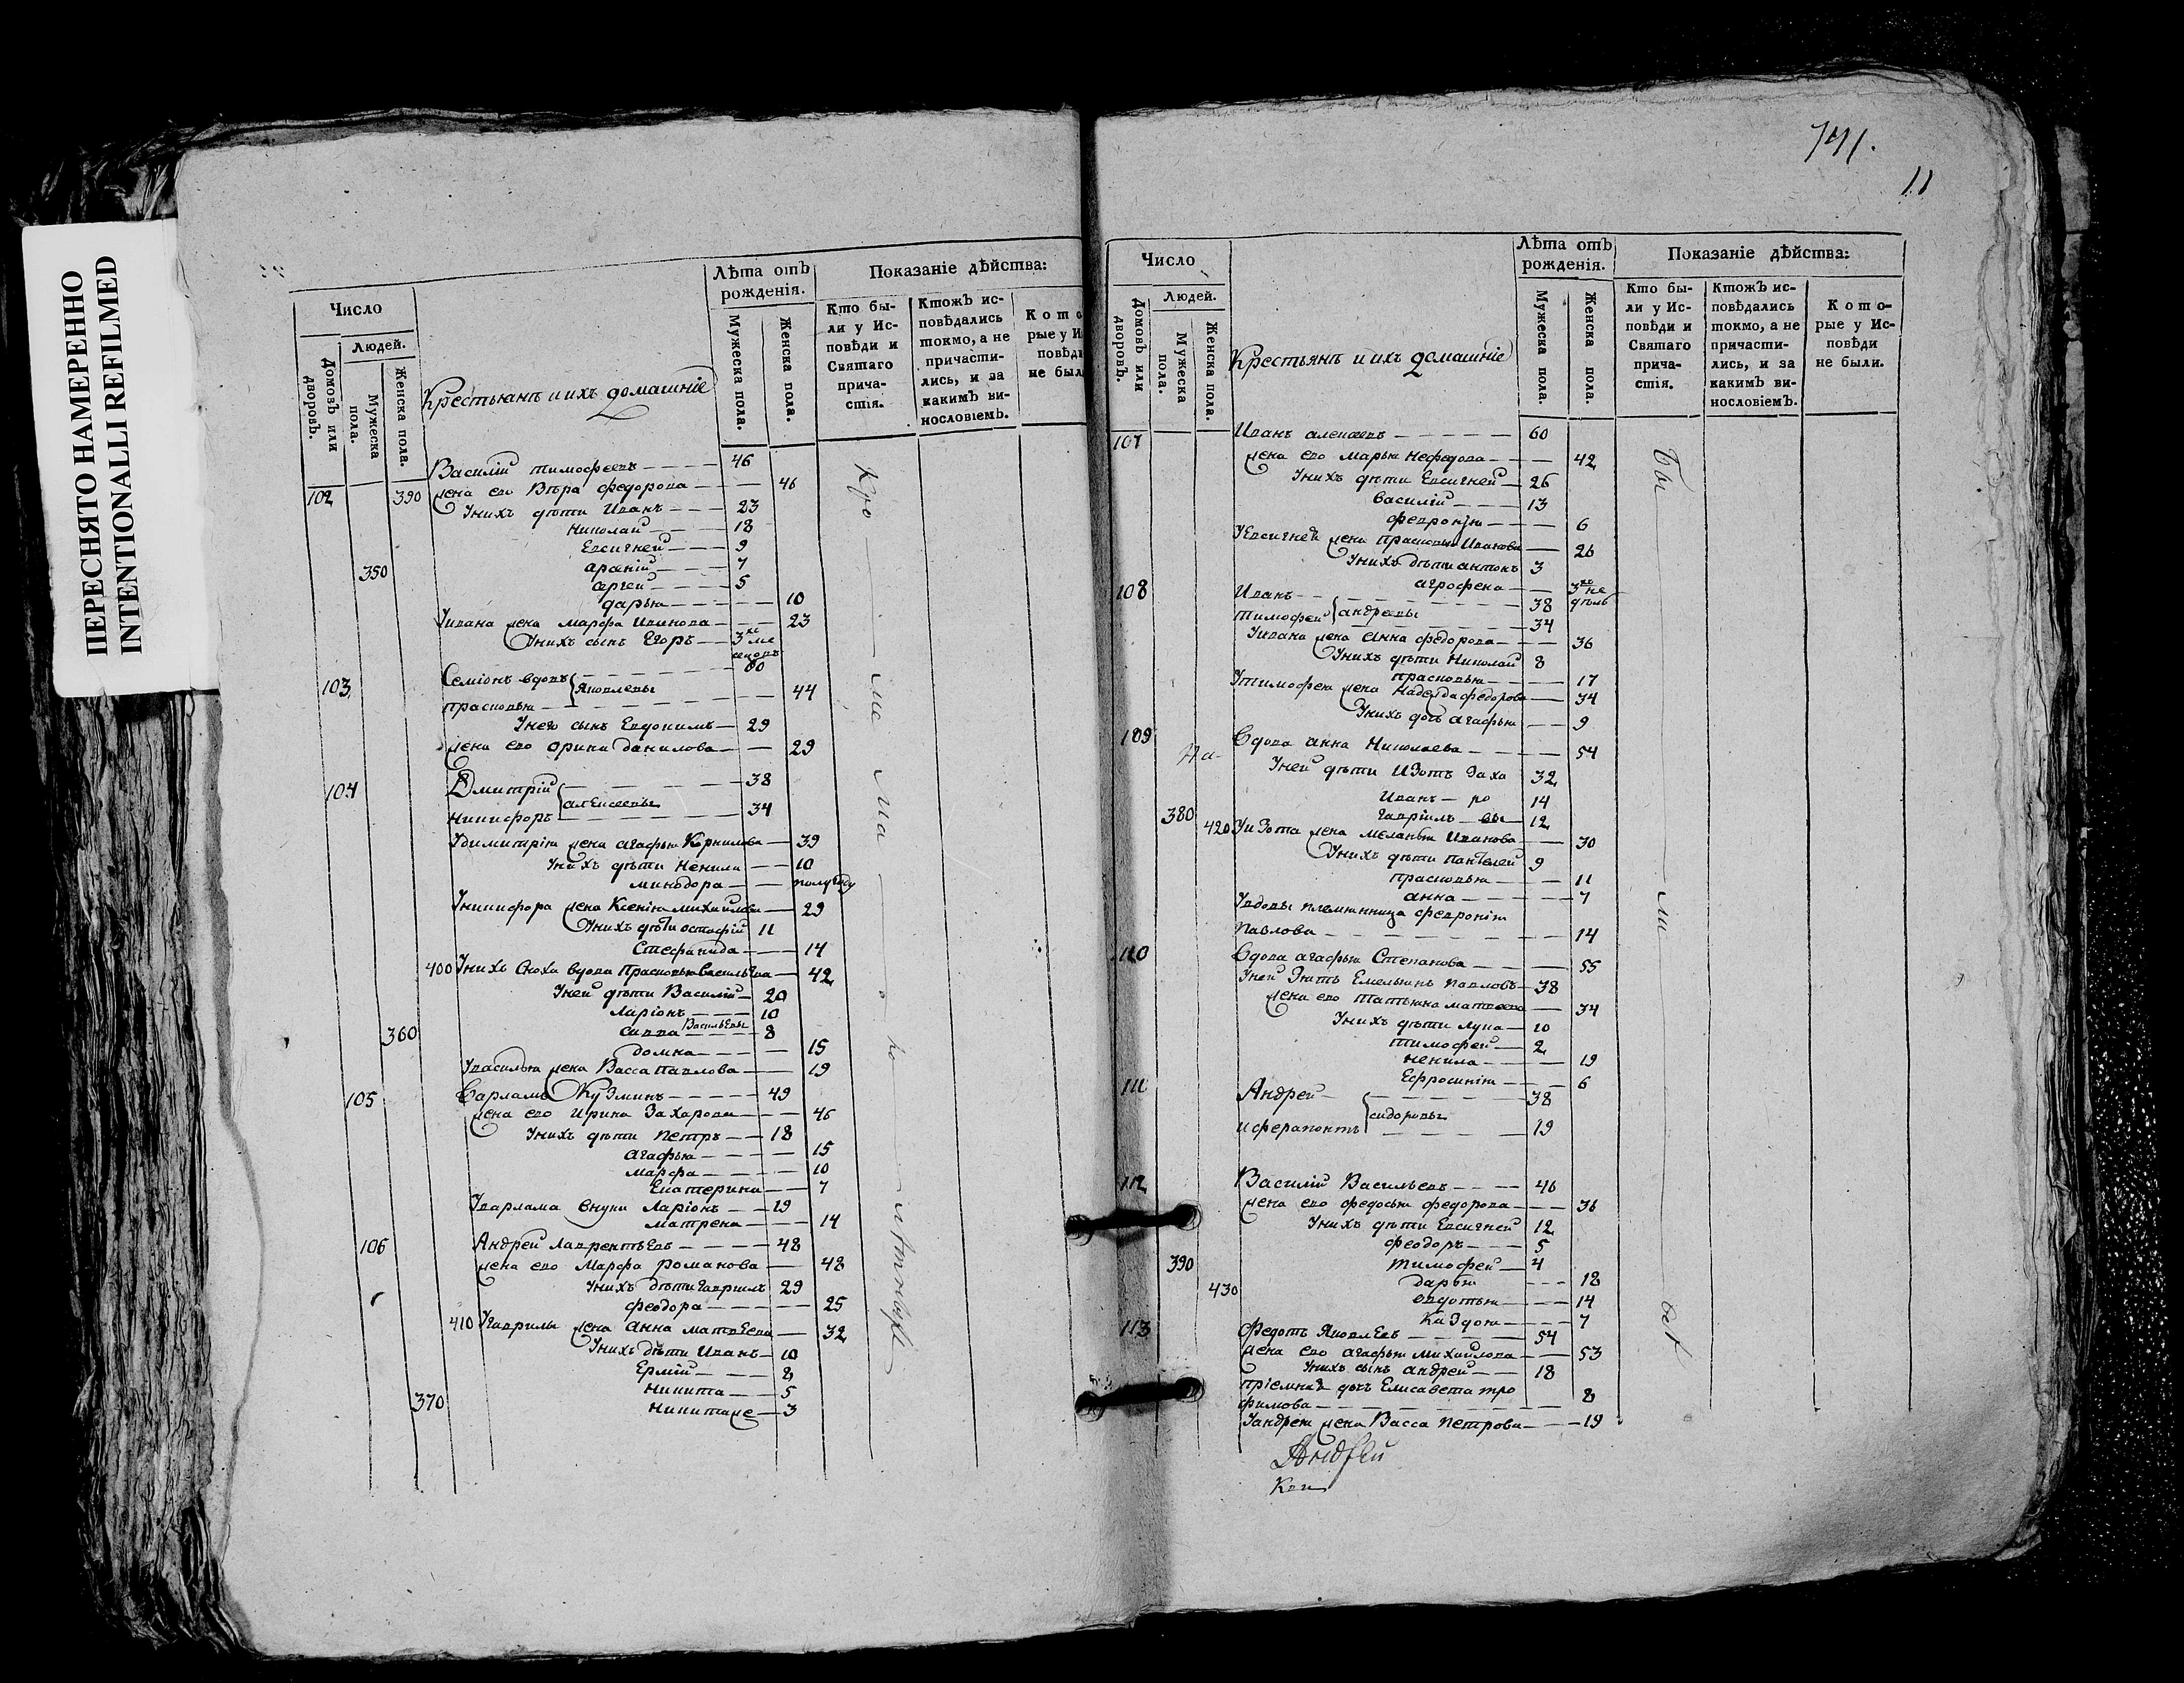 ПЕРЕСНЯТО НАМЕРЕННО
INTENTIONALLI REFILMED
Число
Людей.
Домовъ или дворовъ.
Мужеска пола.
Женска пола.
Крестьянъ и ихъ домашніе
Лѣта отъ рожденія.
Мужеска пола.
Женска пола.
Показаніе дѣйства:
Кто были у Исповѣди и Святаго причастія.
Ктожъ исповѣдались токмо, а не причастились, и за какимъ винословіемъ.
Кото
рые у И
повѣди
не был
Василій тимофеевъ 46
102 390 жена ево Вѣра федорова 46
Унихъ дѣти Иванъ 23
Николай 18
Евсигней 9
350 7
5
дарья 10
Уивана жена марфа Иванова 23
Унихъ сынъ Егоръ 3 ме
сецовъ
103 Семіонъ вдовъ 60
Яковлевы
прасковья 44
Унея сынъ Евдокимъ 29
жена ево орина данилова 29
104 Дмитрій 38
алексеевы
Никифоръ 34
Удимитрія жена агафья Корнилова 39
Унихъ дѣти Ненила 10
минодора полугоду
Уникифора жена Ксенія михайлова 29
Унихъ дѣти остафій 11
Стефанида 14
400 Унихъ сноха вдова Прасковья Васильева 42
Уней дѣти Василій 20
Ларіонъ 10
360 савва Васильевы 8
домна 15
Увасилья жена Васса павлова 19
105 Варламъ Кузминъ 49
жена ево Ирина Захарова 46
Унихъ дѣти петръ 18
агафья 15
марфа 10
Екатерина 7
Уварлама внуки Ларіонъ 19
матрена 14
106 Андрей Лаврентьевъ 48
жена ево Марфа романова 48
Унихъ дѣти гаврилъ 29
феодора 25
410 Угаврилы жена анна матвеева 32
Унихъ дѣти Иванъ 10
Ермій 8
никита 5
370 никитаже 3
741.
11
Число
Людей.
Домовъ или дворовъ.
Мужеска пола.
Женска пола.
Крестьянъ и ихъ домашніе
Лѣта отъ рожденія.
Мужеска пола.
Женска пола.
Показаніе дѣйства:
Кто были у Исповѣди и Святаго причастія.
Ктожъ исповѣдались токмо, а не причастились, и за какимъ винословіемъ.
Которые у Исповѣди не были.
107 Иванъ алексеевъ 60
жена ево марья нефедова 42
Унихъ дѣти Евсигней 26
василій 13
февронія 6
Уевсигнея жена прасковья Иванова 26
Унихъ дѣти антонъ 3
агрофена 3 не
дѣль
108 Иванъ 38
андреевы
тимофей 34
Уивана жена анна федорова 36
Унихъ дѣти Николай 8
прасковья 17
Утимофея жена Надежда федорова 34
Унихъ дочь агафья 9
109 Вдова анна Николаева 54
Уней дѣти Изотъ Заха 32
Иванъ ро 14
380 гаврилъ вы 12
420 Уизота жена меланья Иванова 30
Унихъ дѣти пантелей 9
прасковья 11
анна 7
Увдовы племянница февронія
павлова 14
110 Вдова агафья Степанова 55
Уней Зять Емельянъ павловъ 38
жена ево татьяна матвеева 34
Унихъ дѣти лука 10
тимофей 2
ненила 19
Ефросинія 6
111 Андрей 38
сидоровы
и ферапонтъ 19
112 Василій Васильевъ 46
жена ево федосья федорова 36
Унихъ дѣти Евсигней 12
феодоръ 5
390 тимофей 4
дарья 18
430 евдотья 14
7
113 Федотъ Яковлевъ 54
жена ево агафья михайлова 53
Унихъ сынъ андрей 18
пріемная дочь Елисавета тро
фимова 8
Уандрея жена Васса петрова 19
Андрей